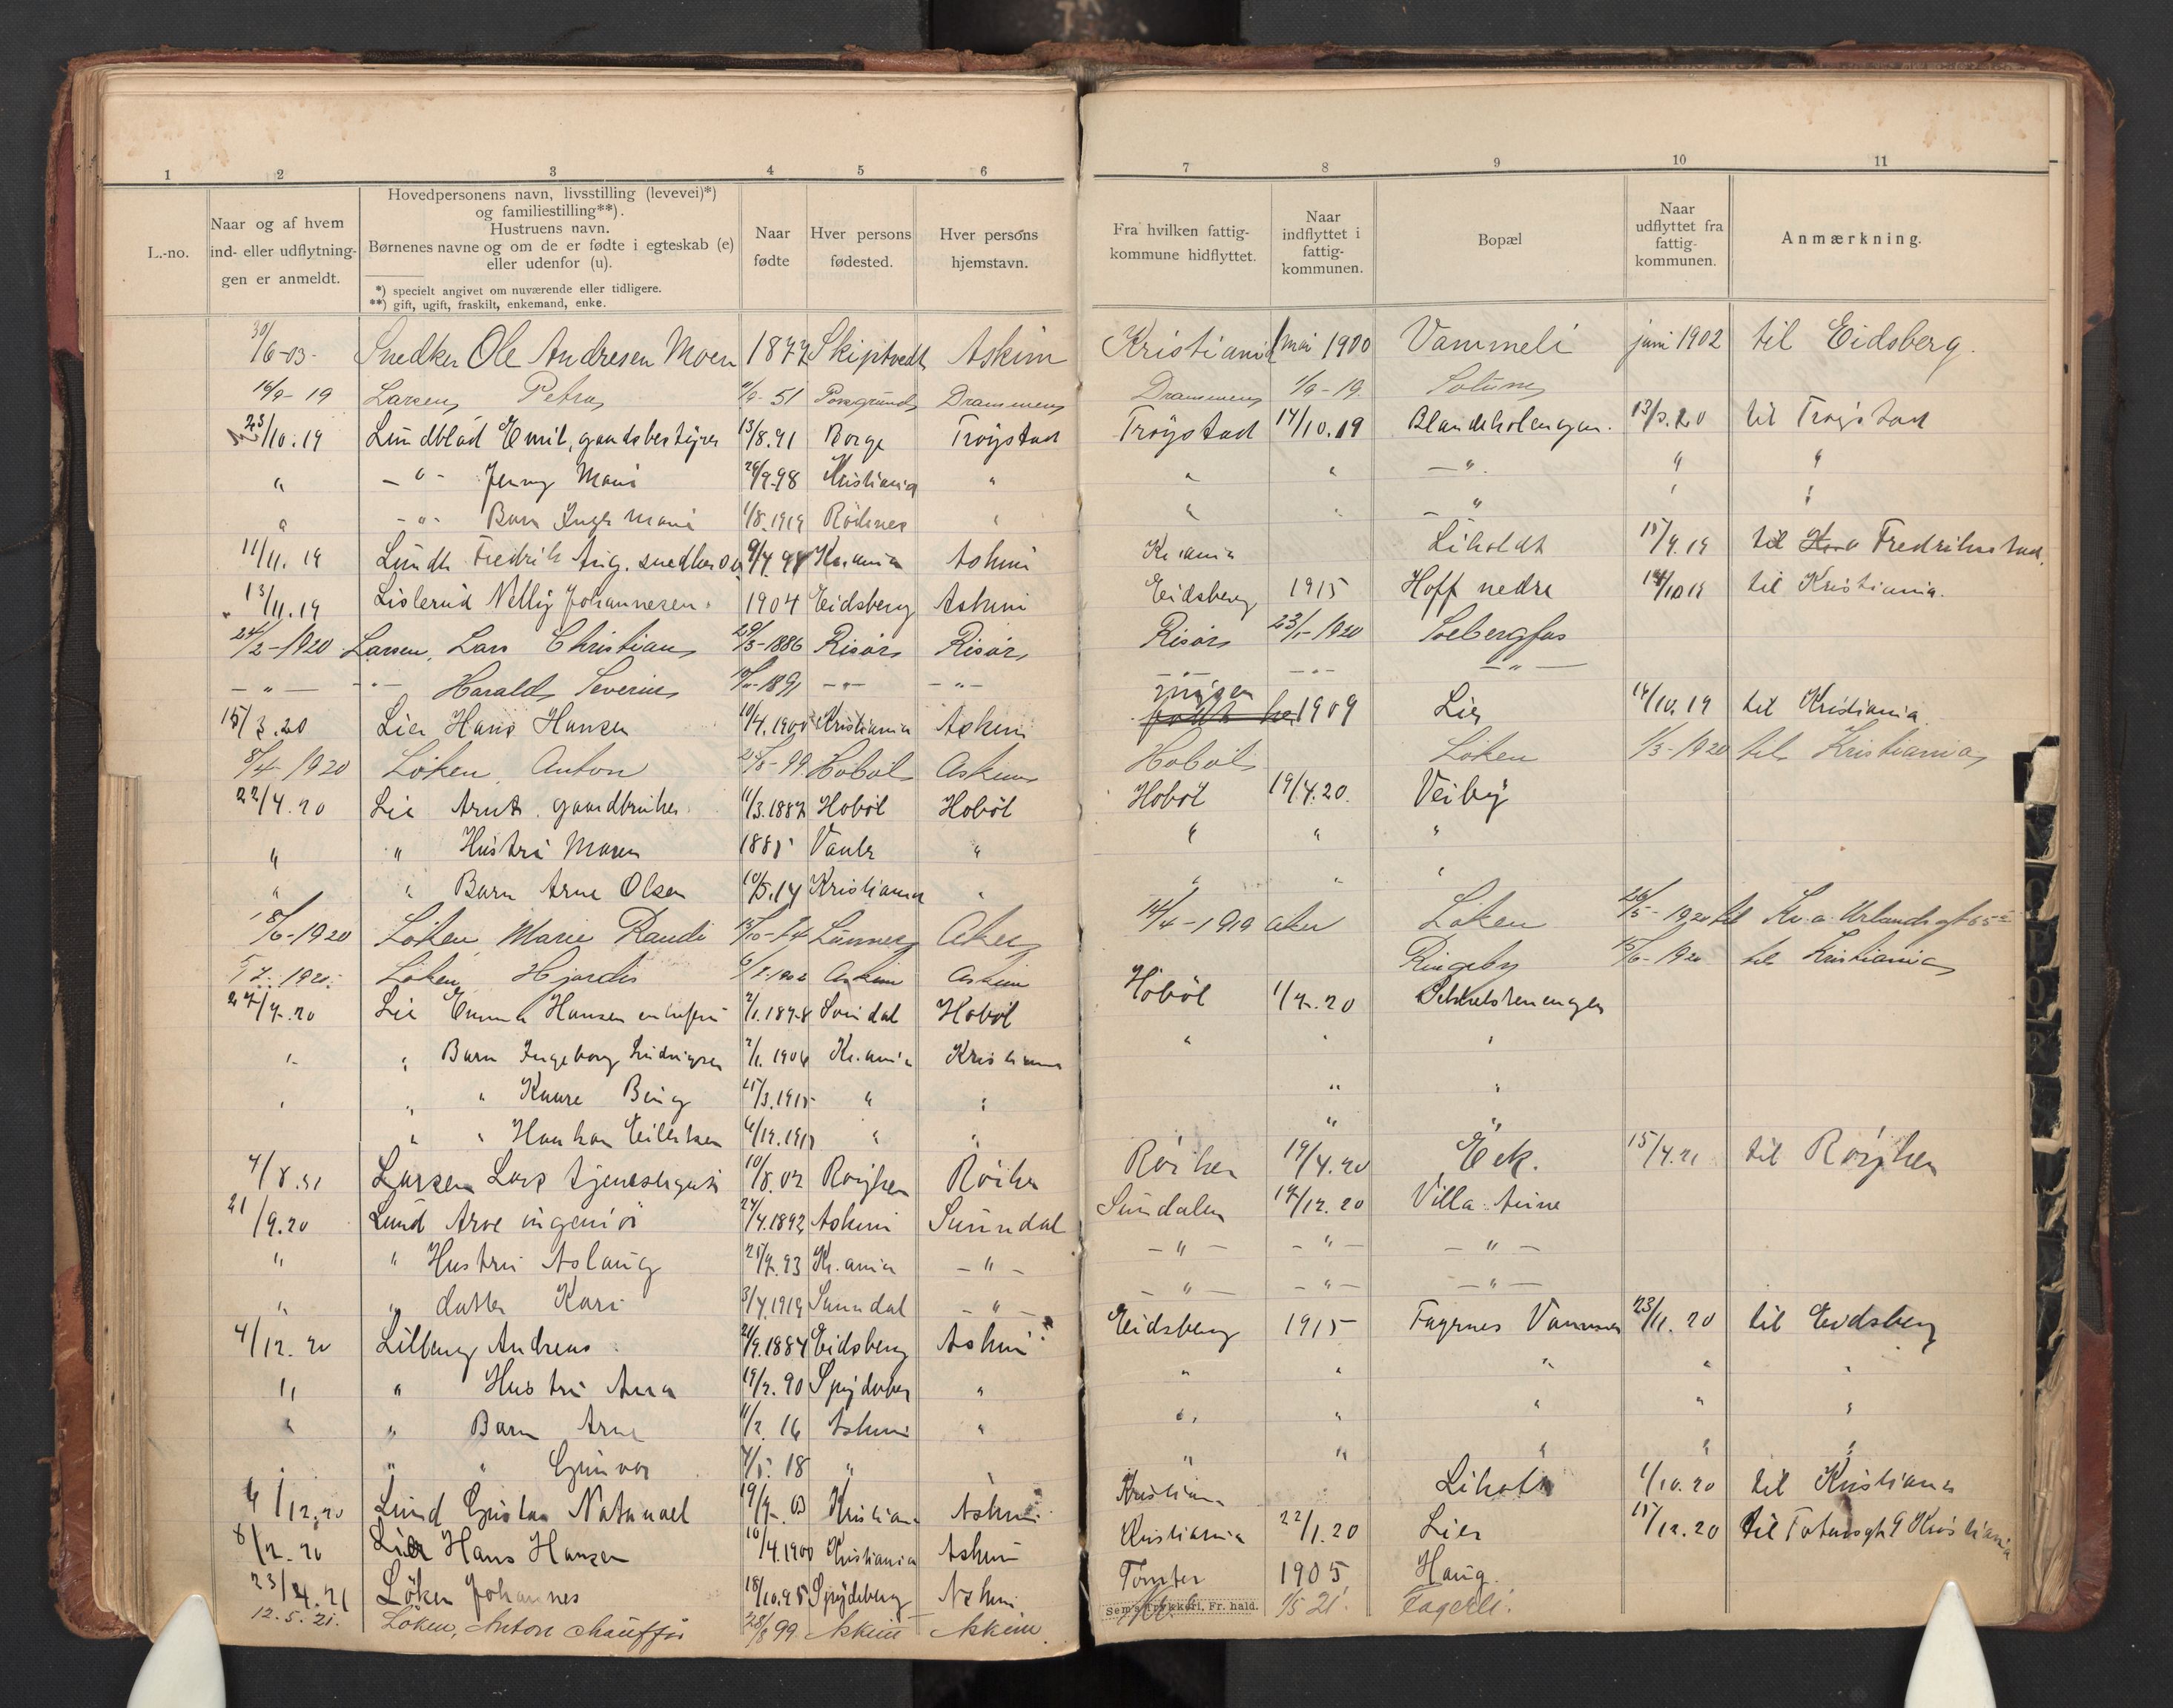 1 2 3 4 5 6 7 8 9 10 11
L.-no.
Naar og af hvem
ind- eller udflytning-
gen er anmeldt.
Hovedpersonens navn, livsstilling (levevei)*)
og familiestilling**).
Hustruens navn.
Børnenes navne og om de er fødte i egteskab (e)
eller udenfor (u).
*) specielt angivet om nuværende eller tidligere.
**) gift, ugift, fraskilt, enkemand, enke.
Naar
fødte
Hver persons
fødested.
Hver persons
hjemstavn.
Fra hvilken fattig-
kommune hidflyttet.
Naar
indflyttet i
fattig-
kommunen.
Bopæl
Naar
udflyttet fra
fattig-
kommunen.
Anmærkning.
30/6-03- Snedker Ole Andresen Moen 1877 Skiptvedt Askim Kristiania mai 1900 Vammeli juni 1902 til Eidsberg.
16/9-19 Larsen Petra 51 Porsgrund Drammen Drammen 1/9-19. 
23/10.19 Lundblad Emil, gaardsbestyrer 13/8.91 Borge Trøgstad Trøgstad 14/10.19 13/3.20 til Trøgstad
" -"- Jenny Marie 26/9.98 Kristiania " " " -"- " "
" -"- Barn Inger Marie 1/8.1919 Rødenes " " " " " "
11/11.19 Lundh Fredrik Aug. snedker 9/4.98 Kr.ania Askim Kr.ania Liholdt 15/9.19 til Fredrikstad
13/11.19 Lislerud Nelly Johannesen. 1904 Eidsberg Askim Eidsberg 1915 Hoff nedre 14/10 19 til Kristiania.
24/2-1920 Larsen, Lars Christian 29/3-1886 Risør Risør Risør 23/1-1920 Solbergfos
-"- -"- Harald Severin 1891 -"- -"- -"- -"- -"-
15/3.20 Lier Hans Hansen 10/4.1900 Kristiania Askim ingen 1909 Lier 14/10.19 til Kristiania.
8/4-1920 Løken, Anton 28/8-99. Hobøl Askim Hobøl Løken 1/3-1920 til Kristiania
22/4.20 Lie Arnt. gaardbruker. 11/3.1887 Hobøl Hobøl Hobøl 19/4.20. Veiby
" " Hustru Maren 1885 Vaaler " " " "
" " Barn Arne Olsen 10/5.14 Kristiania " " " "
8/6-1920 Løken, Marie Randi Aker 14/4-1919 aker Løken 26/5-1920 til Kr.a.
1920. Løken Hjørdis Askim Askim Ringeby 15/6-1920. til Kristiania
27/7.20 Lie Emma Hansen 2/1.1878 Hobøl Hobøl 1/7.20
" " Barn Ingeborg 2/1.1906 Kr.ania Kristiania " " "
" " " Kaare 25/3.1915 " " " "
" " " Haakon Eilertsen " " " "
4/8.21 Larsen Lars tjenestegut 10/8.02 Røyken Røiken Røiken 19/4.20 Eek. 15/4.21 til Røyken
21/9.20 Lund Arve ingeniør 24/4.1892 Askim Sunndal Sundalen 14/12.20 Villa
" " Hustru Aslaug 93 Kr.ania -"- -"- -"- -"-
" " datter Kari 3/4.1919 Sunndal -"- -"- -"- -"-
4/12.20 Lilleng Andreas 1884 Eidsberg Askim Eidsberg 1915 Fagernes 23/11.20 til Eidsberg
" " Hustru Anna 90 Spydeberg " " " " " "
" " Barn Arne 11/2.16 Askim " " " " " "
" " " Gunvor 18 " " " " " " "
6/12.20 Lund Gustav Natanael 03 Kristiania Askim Kristiania Liholt 1/10.20 til Kristiania
8/12.20 Lier Hans Hansen 10/4.1900 Kristiania Askim Kristiania 22/1.20 Lier 15/12.20 til Kristiania
23/4.21 Løken Johannes 18/10.95 Spydeberg Askim Tomter 1905 Haug.
12.5.21. Løken, Anton chauffør 28/8 99 Askim Askim. Kr. 1/5 21. Fagerli.
Sem & Trykkeri, Fr. hald.